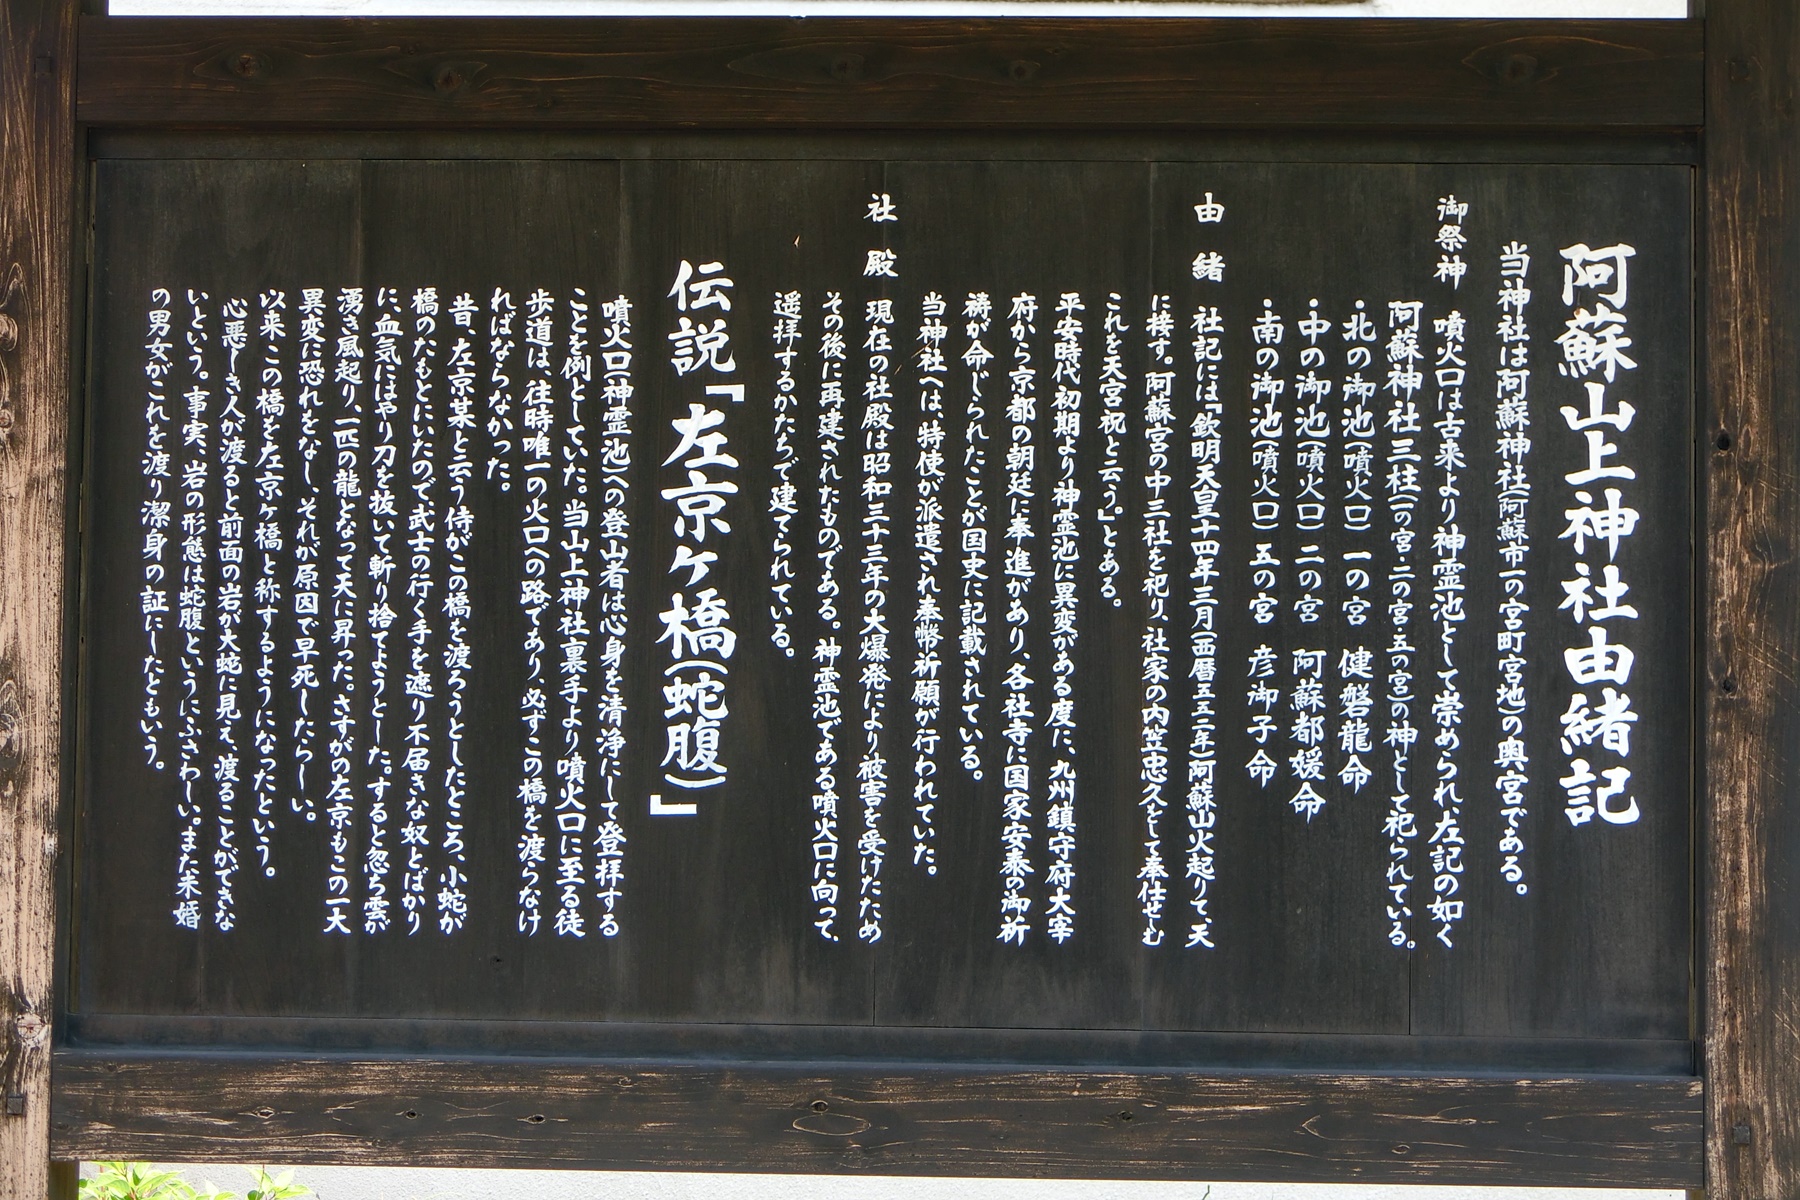 阿蘇山上神社由緒記
当神社は阿蘇神社(阿蘇市一の宮町宮地)の奥宮である。
御祭神 噴火口は古来より神霊池として崇められ、左記の如く
阿蘇神社三柱(一の宮・二の宮・五の宮)の神として祀られている。
・北の御池(噴火口) 一の宮 健磐龍命
・中の御池(噴火口) 二の宮 阿蘇都媛命
・南の御池(噴火口) 五の宮 彦御子命
由緒 社記には「欽明天皇十四年三月(西暦五五二年)阿蘇山火起りて、天
に接す。阿蘇宮の中三社を祀り、社家の内笠忠久をして奉仕せしむ
これを天宮祝と云う。」とある。
平安時代初期より神霊池に異変がある度に、九州鎮守府大宰
府から京都の朝廷に奉進があり、各社寺に国家安泰の御祈
祷が命じられたことが国史に記載されている。
当神社へは、特使が派遣され奉幣祈願が行われていた。
社殿 現在の社殿は昭和三十三年の大爆発により被害を受けたため
その後に再建されたものである。神霊池である噴火口に向って、
遥拝するかたちで建てられている。
伝説「左京ヶ橋(蛇腹)」
噴火口(神霊池)への登山者は心身を清浄にして登拝する
ことを例としていた。当山上神社裏手より噴火口に至る徒
歩道は、往時唯一の火口への路であり、必ずこの橋を渡らなけ
ればならなかった。
昔、左京某と云う侍がこの橋を渡ろうとしたところ、小蛇が
橋のたもとにいたので武士の行く手を遮り不届きな奴とばかり
に、血気にはやり刀を抜いて斬り捨てようとした。すると忽ち雲が
湧き風起り、一匹の龍となって天に昇った。さすがの左京もこの一大
異変に恐れをなし、それが原因で早死したらしい。
以来この橋を左京ヶ橋と称するようになったという。
心悪しき人が渡ると前面の岩が大蛇に見え、渡ることができな
いという。事実、岩の形態は蛇腹というにふさわしい。また未婚
の男女がこれを渡り潔身の証にしたともいう。